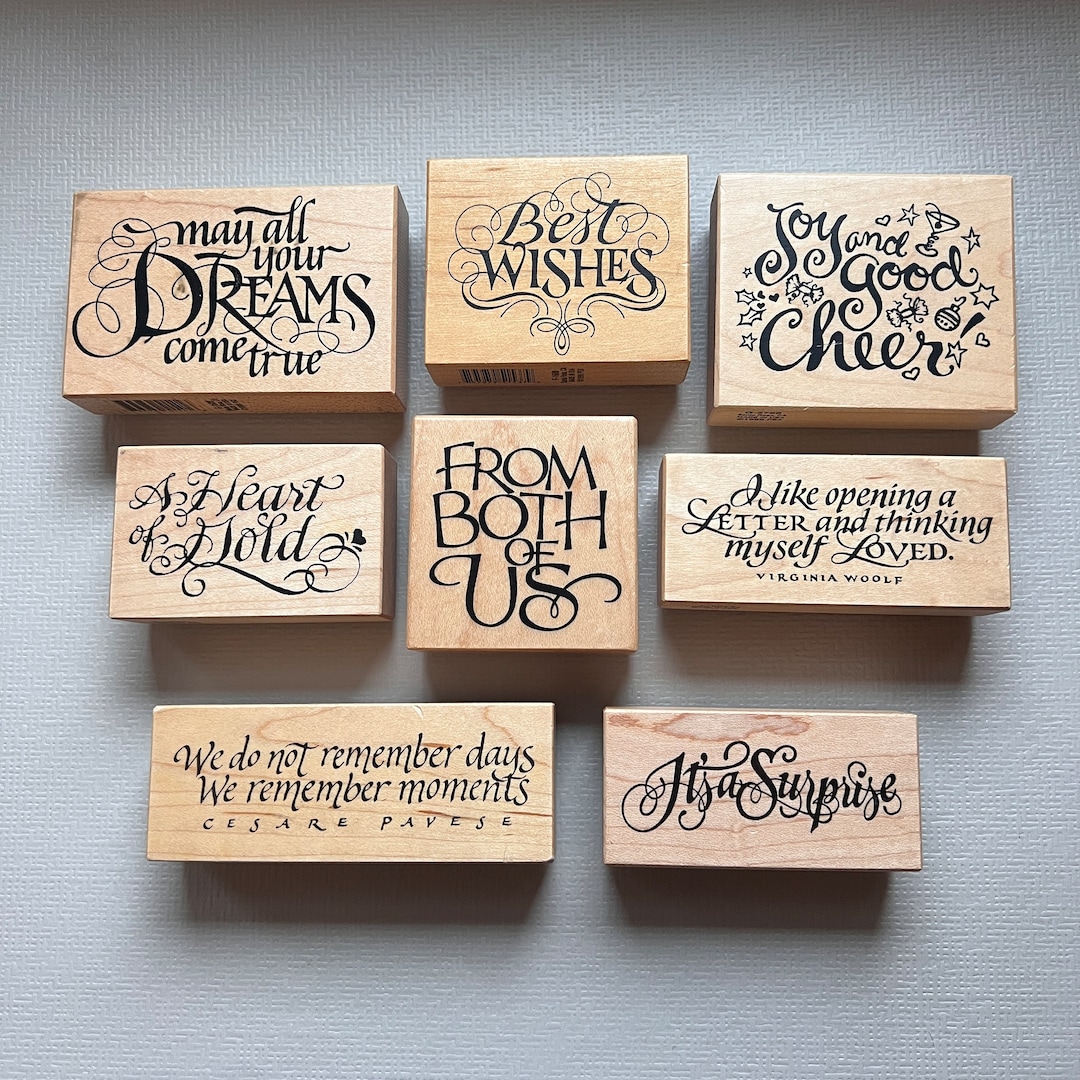 may all
your
DREAMS
come true
Best
WISHES
Joy and
good
Cheer
A Heart
of Gold
FROM
BOTH
OF
US
I like opening a
LETTER and thinking
myself LOVED.
VIRGINIA WOOLF
We do not remember days
We remember moments
CESARE PAVESE
It's a Surprise